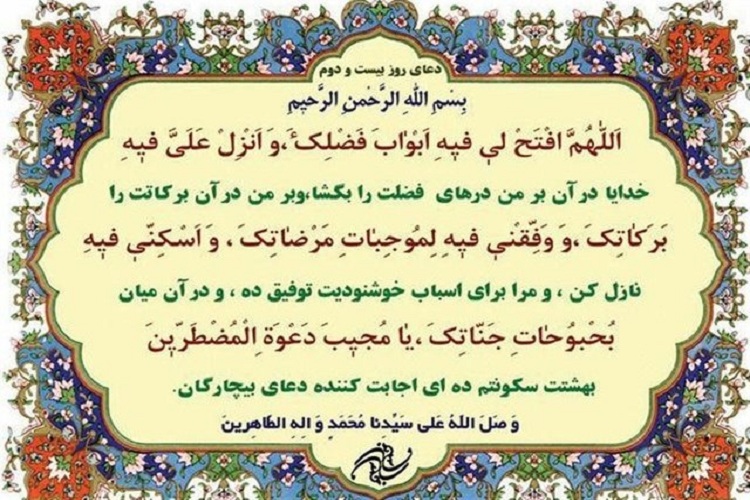 دعای روز بیست و دوم
بِسْمِ اللهِ الرَّحْمنِ الرَّحیمِ
اَللّهُمَّ افْتَحْ لی فیهِ اَبْوٰابَ فَضْلِکَ،وَ اَنْزِلْ عَلَیَّ فیهِ
خدایا در آن بر من درهای فضلت را بگشا،وبر من در آن برکاتت را
بَرَکٰاتِکَ،وَ وَفِّقْنی فیهِ لِمُوجِبٰاتِ مَرْضٰاتِکَ ، وَ اَسْکِنّی فیهِ
نازل کن ، و مرا برای اسباب خوشنودیت توفیق ده ، و در آن میان
بُحْبُوحٰاتِ جَنّاتِکَ ،یٰا مُجیبَ دَعْوَةِ الْمُضْطَرّینَ
بهشتت سکونتم ده ای اجابت کننده دعای بیچارگان.
وَ صَلَ اللهُ عَلی سَیِّدنا مُحَمَدٍ وَ الِهِ الطّاهِرینَ